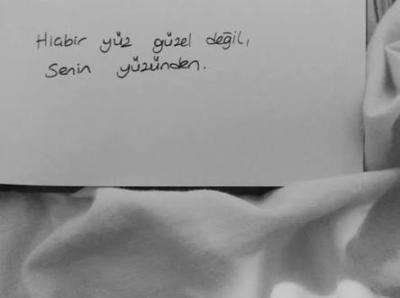 Hiçbir yüz güzel değil,
Senin yüzünden.